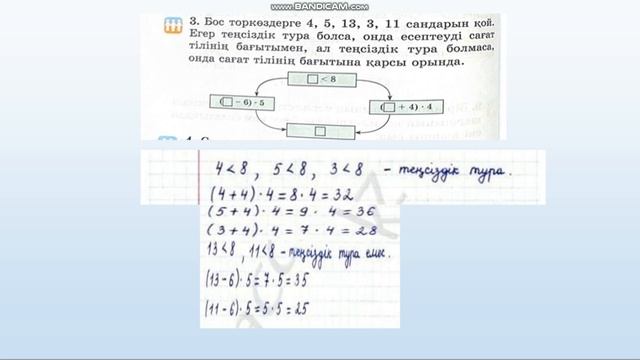 WWW.BANDICAM.COM
3. Бос торкөздерге 4, 5, 13, 3, 11 сандарын қой.
Егер теңсіздік тура болса, онда есептеуді сағат
тілінің бағытымен, ал теңсіздік тура болмаса,
онда сағат тілінің бағытына қарсы орында.
□ < 8
(□ – 6) · 5
(□ + 4) · 4
□
4 < 8, 5 < 8, 3 < 8 – теңсіздік тура.
(4+4) · 4 = 8 · 4 = 32
(5+4) · 4 = 9 · 4 = 36
(3+4) · 4 = 7 · 4 = 28
13<8, 11<8 – теңсіздік тура емес.
(13–6) · 5 = 7 · 5 = 35
(11–6) · 5 = 5 · 5 = 25